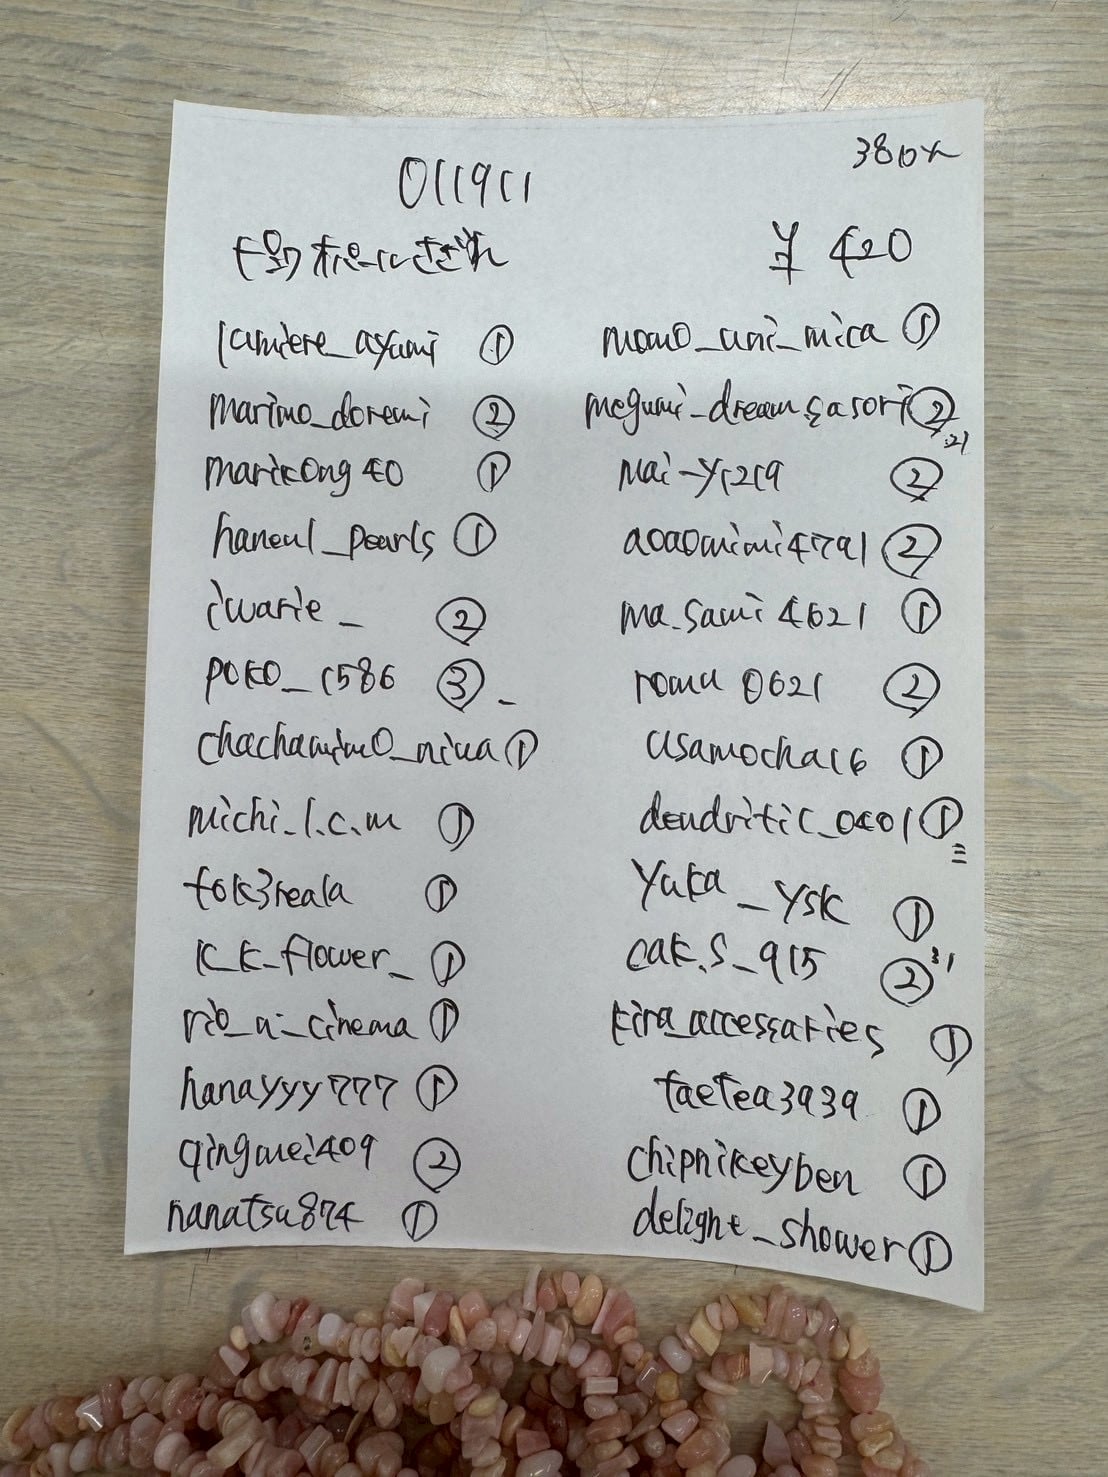 011911
¥ 420
lumiere_ayumi ①
marimo_doremi ②
marikong40 ①
haneul_pearls ①
iwarie_ ②
poko_1586 ③
chachamimo_niwa ①
michi_l.c.m ①
tok3reala ①
k_k_flower_ ①
rio_a_cinema ①
hanayyy777 ①
qingmei409 ②
nanatsu874 ①
momo_uni_mica ①
megumi_dreamsasori ②
mai-y1219 ②
aoaomimi4791 ②
ma_sami4621 ①
roma0621 ②
usamocha16 ①
dendritic_0401 ①
yuka_ysk ①
oak.s_915 ②
kira_accessaries ①
taetea3939 ①
chipnikeyben ①
delight_shower ①